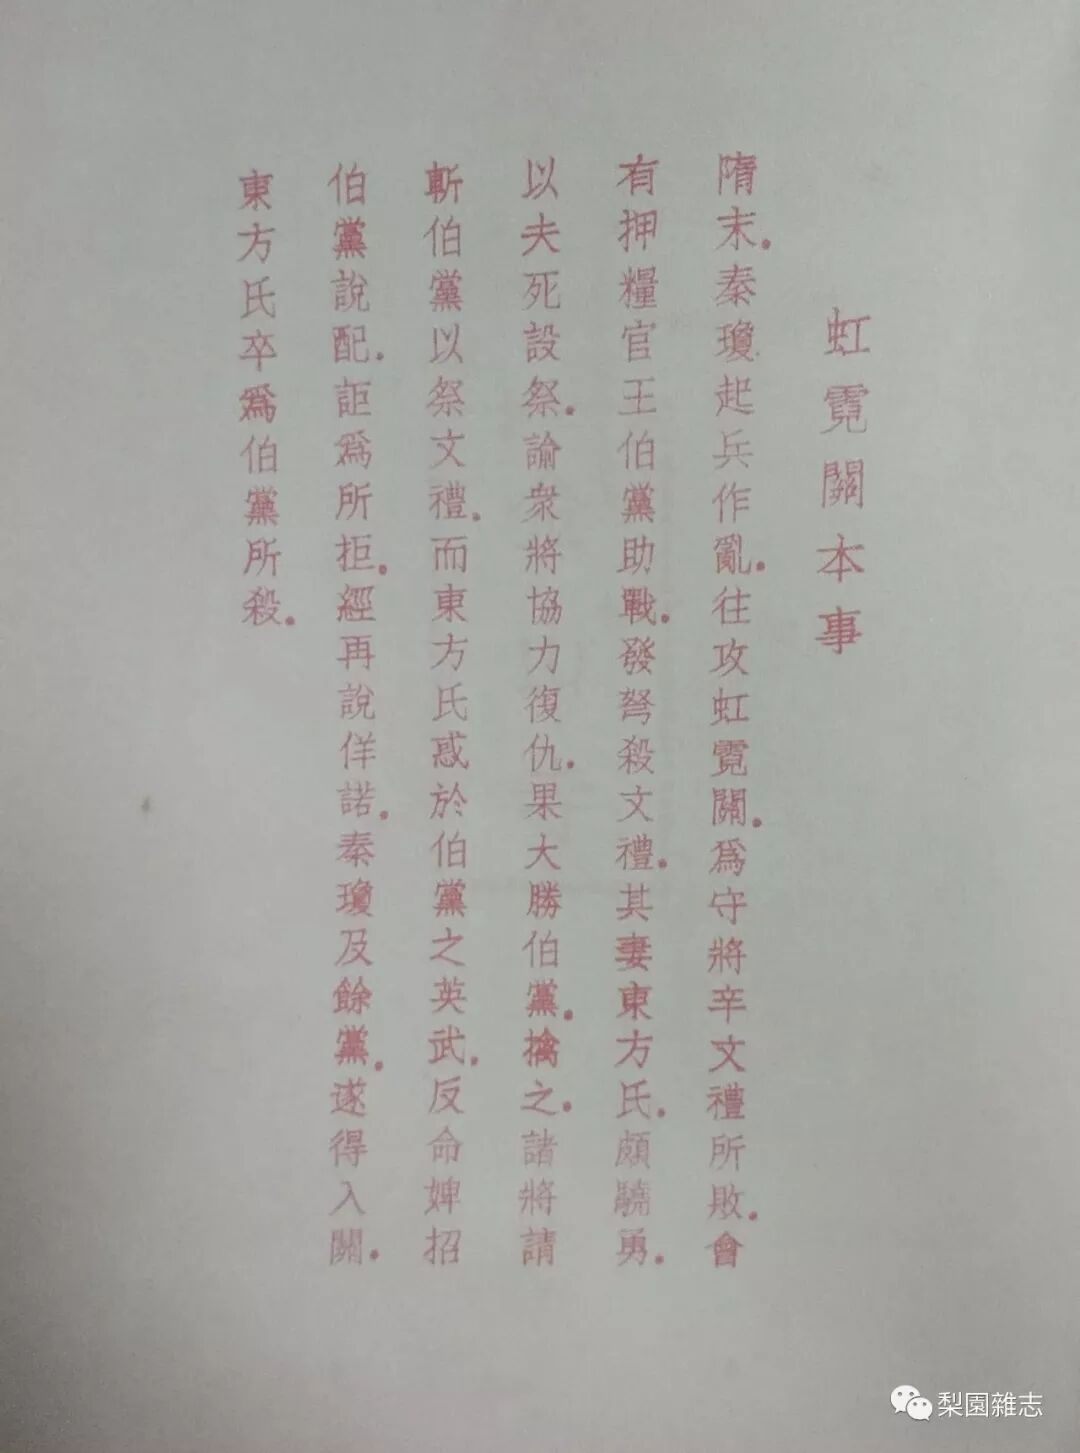 虹霓關本事
隋末.秦瓊起兵作亂.往攻虹霓關.爲守將辛文禮所敗.會
有押糧官王伯黨助戰.發弩殺文禮.其妻東方氏.頗驍勇.
以夫死設祭.諭衆將協力復仇.果大勝伯黨.擒之.諸將請
斬伯黨以祭文禮.而東方氏惑於伯黨之英武.反命婢招
伯黨說配.詎爲所拒.經再說佯諾.秦瓊及餘黨.遂得入關.
東方氏卒爲伯黨所殺.
梨園雜志